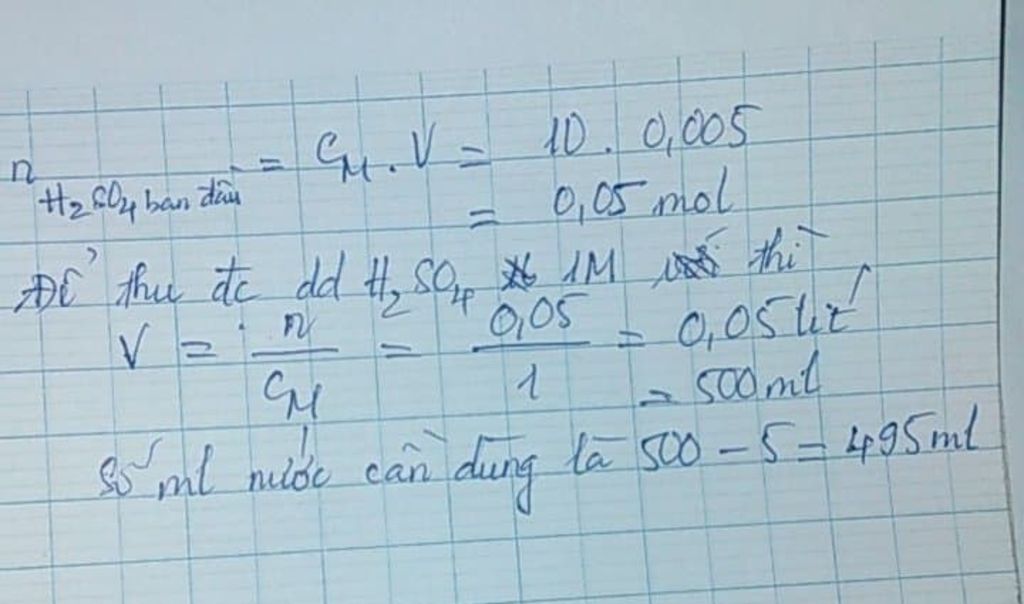 n H₂SO₄ ban đầu = C_M . V = 10 . 0,005
= 0,05 mol
Để thu đc dd H₂SO₄ 1M thì
V = n / C_M = 0,05 / 1 = 0,05 lít
= 500 ml
Số ml nước cần dùng là 500 - 5 = 495 ml